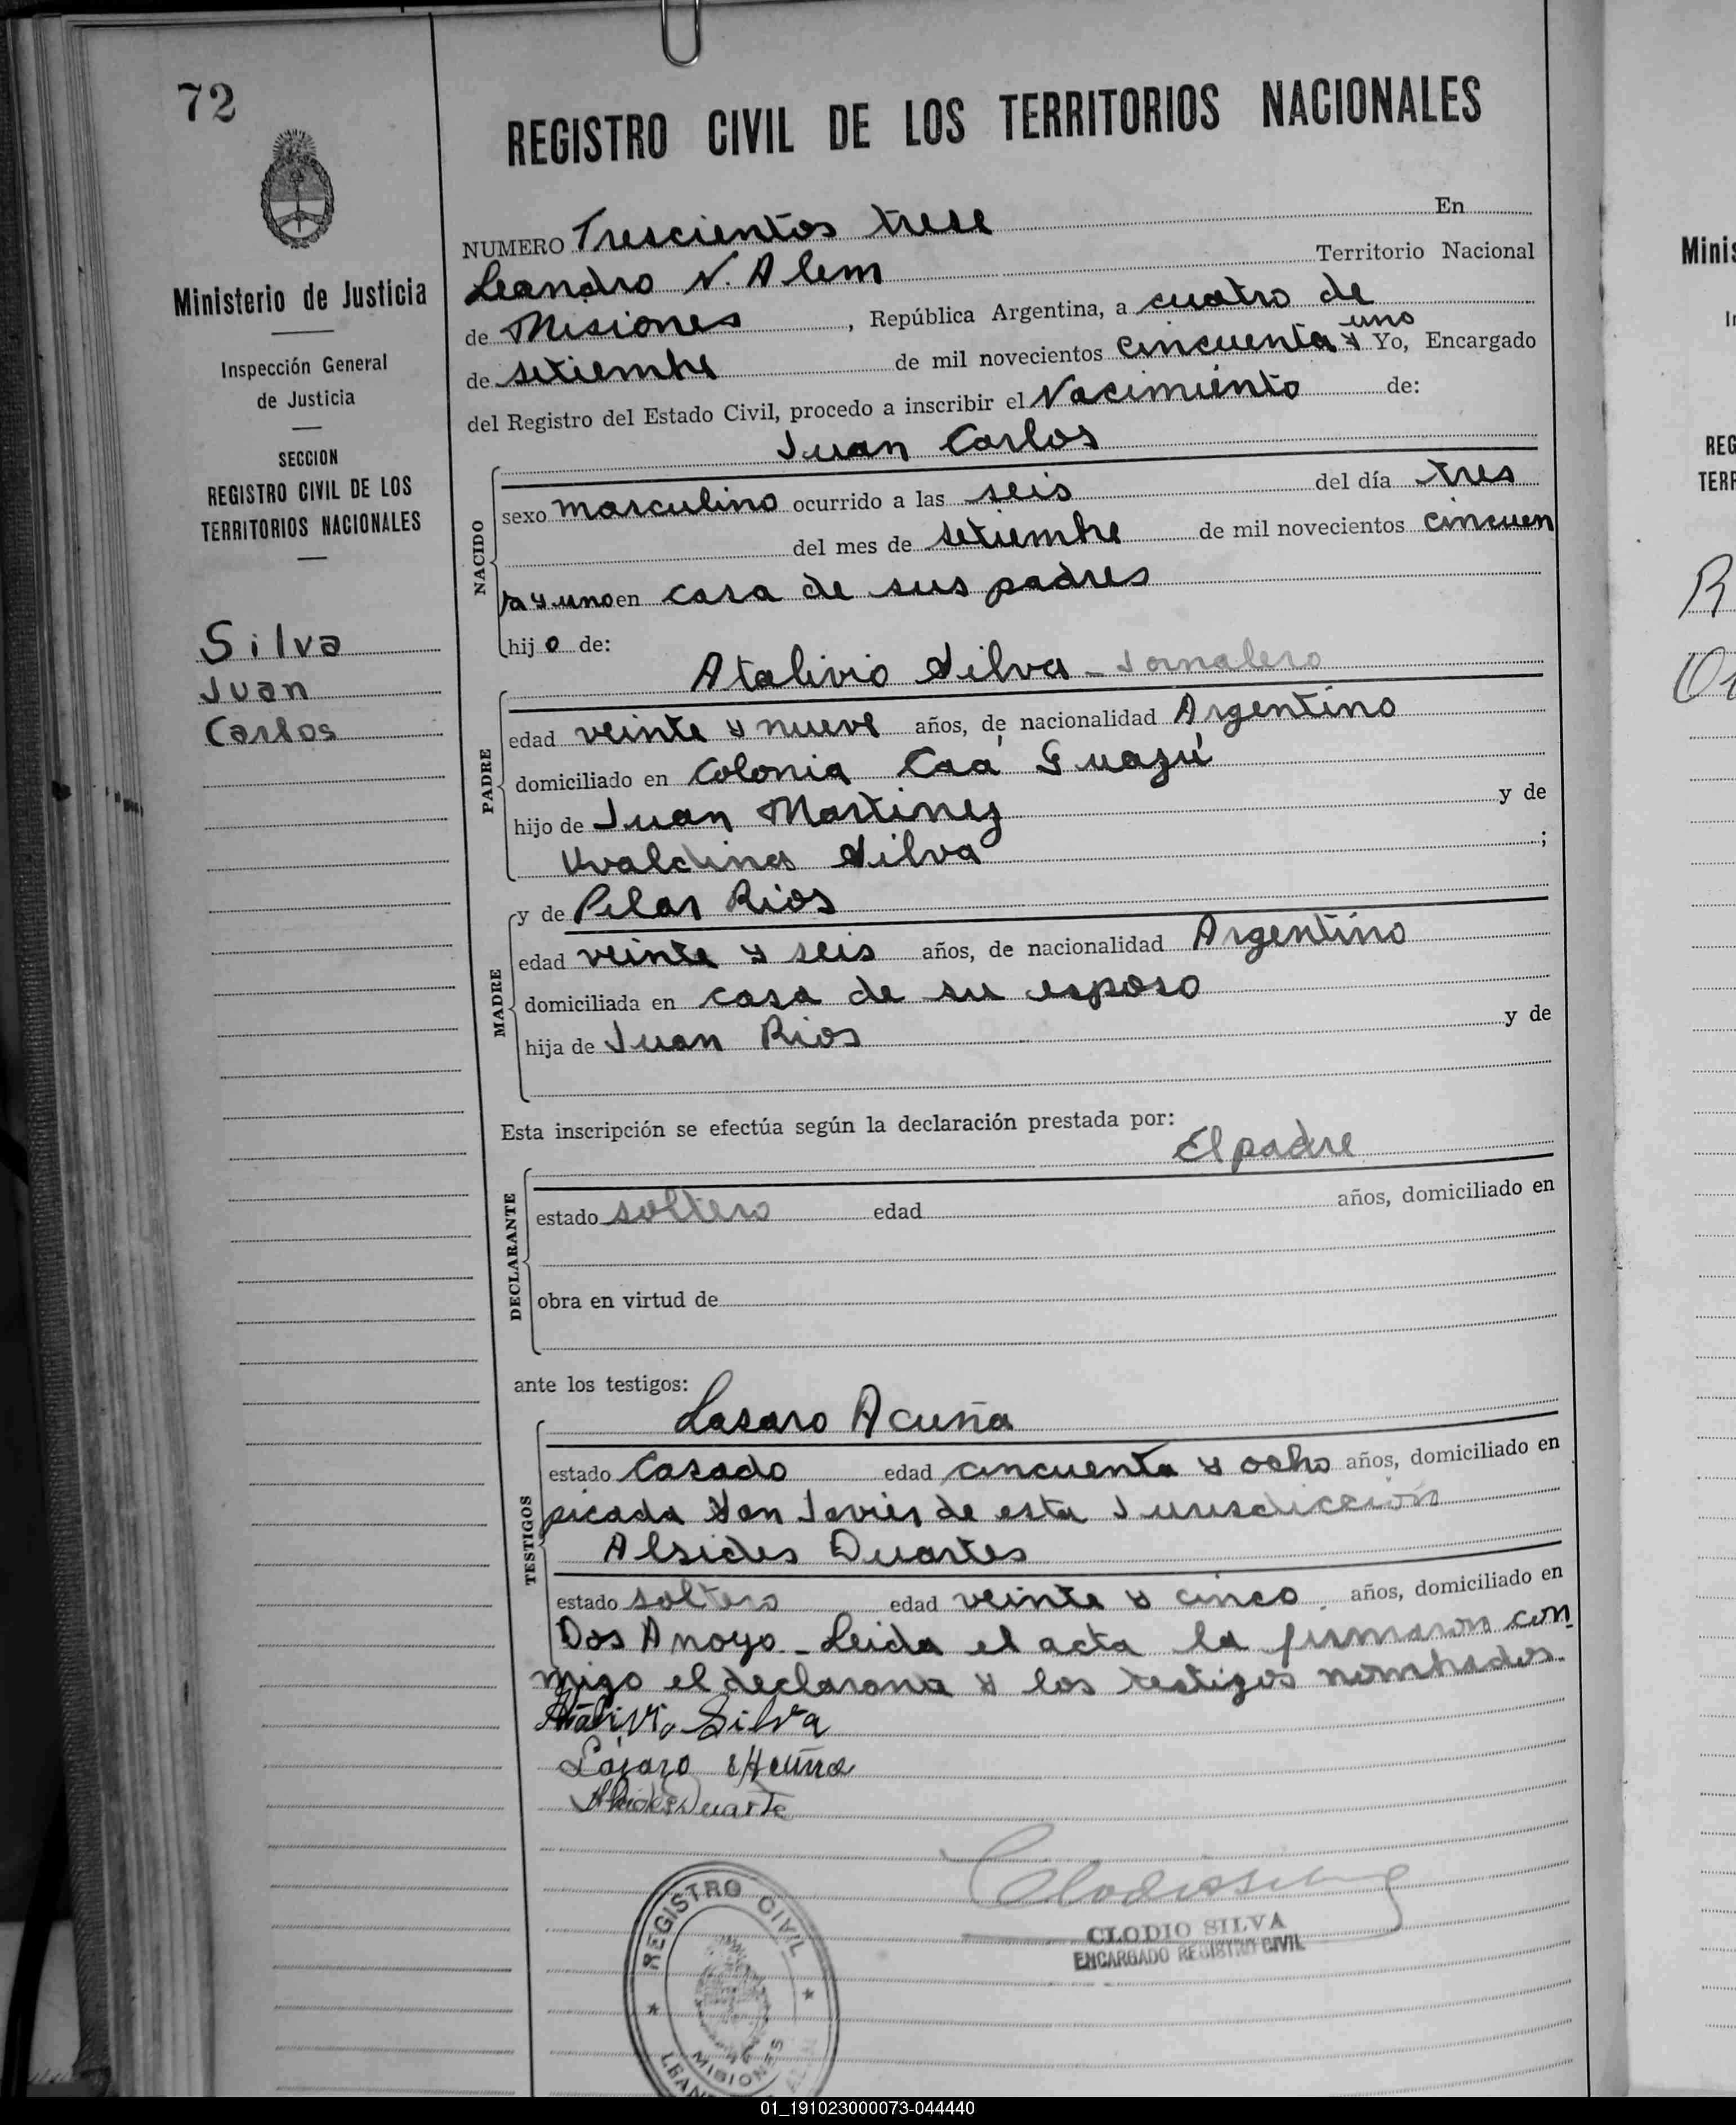 72
REGISTRO CIVIL DE LOS TERRITORIOS NACIONALES
Ministerio de Justicia
Inspección General
de Justicia
SECCION
REGISTRO CIVIL DE LOS
TERRITORIOS NACIONALES
Silva
Juan
Carlos
NUMERO Trescientos trese En
Leandro N. Alem Territorio Nacional
de Misiones, República Argentina, a cuatro de
de setiembre de mil novecientos cincuenta y uno Yo, Encargado
del Registro del Estado Civil, procedo a inscribir el Nacimiento de:
Juan Carlos
NACIDO
sexo masculino ocurrido a las seis del día tres
del mes de setiembre de mil novecientos cincuen
ta y uno en casa de sus padres
hijo de:
Atalivio Silva - Jornalero
PADRE
edad veinte y nueve años, de nacionalidad Argentino
domiciliado en Colonia Caá Guazú
hijo de Juan Martinez y de
Silva ;
y de Pilar Rios
MADRE
edad veinte y seis años, de nacionalidad Argentino
domiciliada en casa de su esposo
hija de Juan Rios y de
Esta inscripción se efectúa según la declaración prestada por:
El padre
DECLARANTE
estado soltero edad años, domiciliado en
obra en virtud de
ante los testigos:
Lasaro Acuña
TESTIGOS
estado Casado edad cincuenta y ocho años, domiciliado en
picada San Javier de esta Jurisdicción
Alsides Duartes
estado soltero edad veinte y cinco años, domiciliado en
Dos Arroyo - Leida el acta la firmaron con
migo el declarante y los testigos nombrados.
Atalivio Silva
Lázaro Acuña
Alcides Duarte
REGISTRO CIVIL
MISIONES
LEAN
CLODIO SILVA
ENCARGADO REGISTRO CIVIL
Minis
REG
TERR
R
01_191023000073-044440